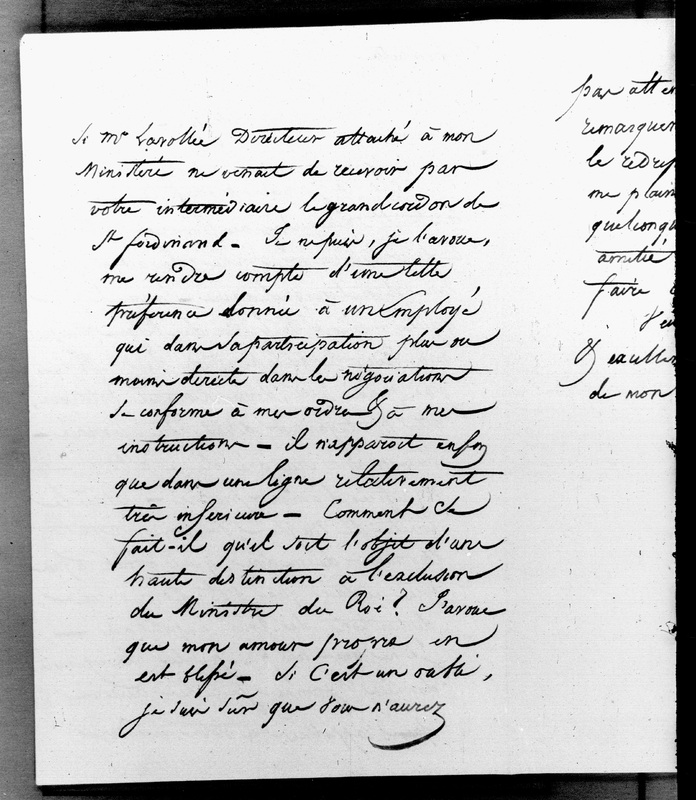 si mr Lavollée Directeur attaché à mon
Ministère ne venait de recevoir par
votre intermédiaire le grand cordon de
St ferdinand - Je ne puis, je l'avoue,
me rendre compte d'une telle
préférence donnée à un Employé
qui dans sa participation plus ou
moins directe dans les négociations
se conforme à mes ordres & à mes
instructions - il n'apparoit enfin
que dans une ligne relativement
très inferieure - Comment se
fait-il qu'il soit l'objet d'une
haute distinction à l'exclusion
du Ministre du Roi? J'avoue
que mon amour propre en
est blessé - Si C'est un oubli,
je suis sûr que vous n'aurez
par atten
remarquer
le redre
me plain
quelconqu
amitié
faire
& excellen
de mon